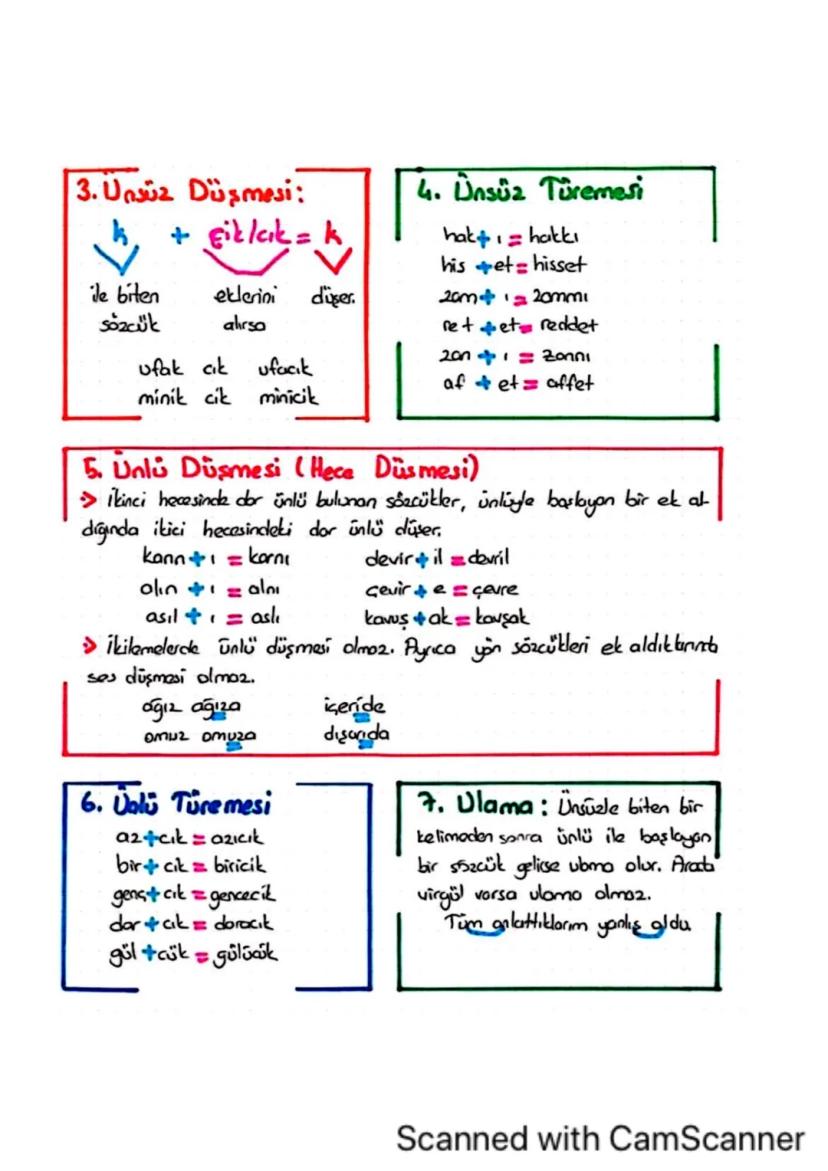 3. Ünsüz Düşmesi:
k + çik/cık = k
ile biten eklerini düşer.
sözcük alırsa
ufak cık ufacık
minik cik minicik
4. Ünsüz Türemesi
hak + ı = hakkı
his + et = hisset
zam + ı = zammı
ret + et = reddet
zan + ı = zannı
af + et = affet
5. Ünlü Düşmesi (Hece Düşmesi)
> İkinci hecesinde dar ünlü bulunan sözcükler, ünlüyle başlayan bir ek al-
dığında ikici hecesindeki dar ünlü düşer.
karın + ı = karnı devir + il = devril
alın + ı = alnı çevir + e = çevre
asıl + ı = aslı kavuş + ak = kavşak
> İkilemelerde ünlü düşmesi olmaz. Ayrıca yön sözcükleri ek aldıklarında
ses düşmesi olmaz.
ağız ağıza içeride
omuz omuza dışarıda
6. Ünlü Türemesi
az + cık = azıcık
bir + cik = biricik
genç + cik = gencecik
dar + cık = daracık
gül + cük = gülücük
7. Ulama: Ünsüzle biten bir
kelimeden sonra ünlü ile başlayan
bir sözcük gelirse ulama olur. Arada
virgül varsa ulama olmaz.
Tüm anlattıklarım yanlış oldu.
Scanned with CamScanner